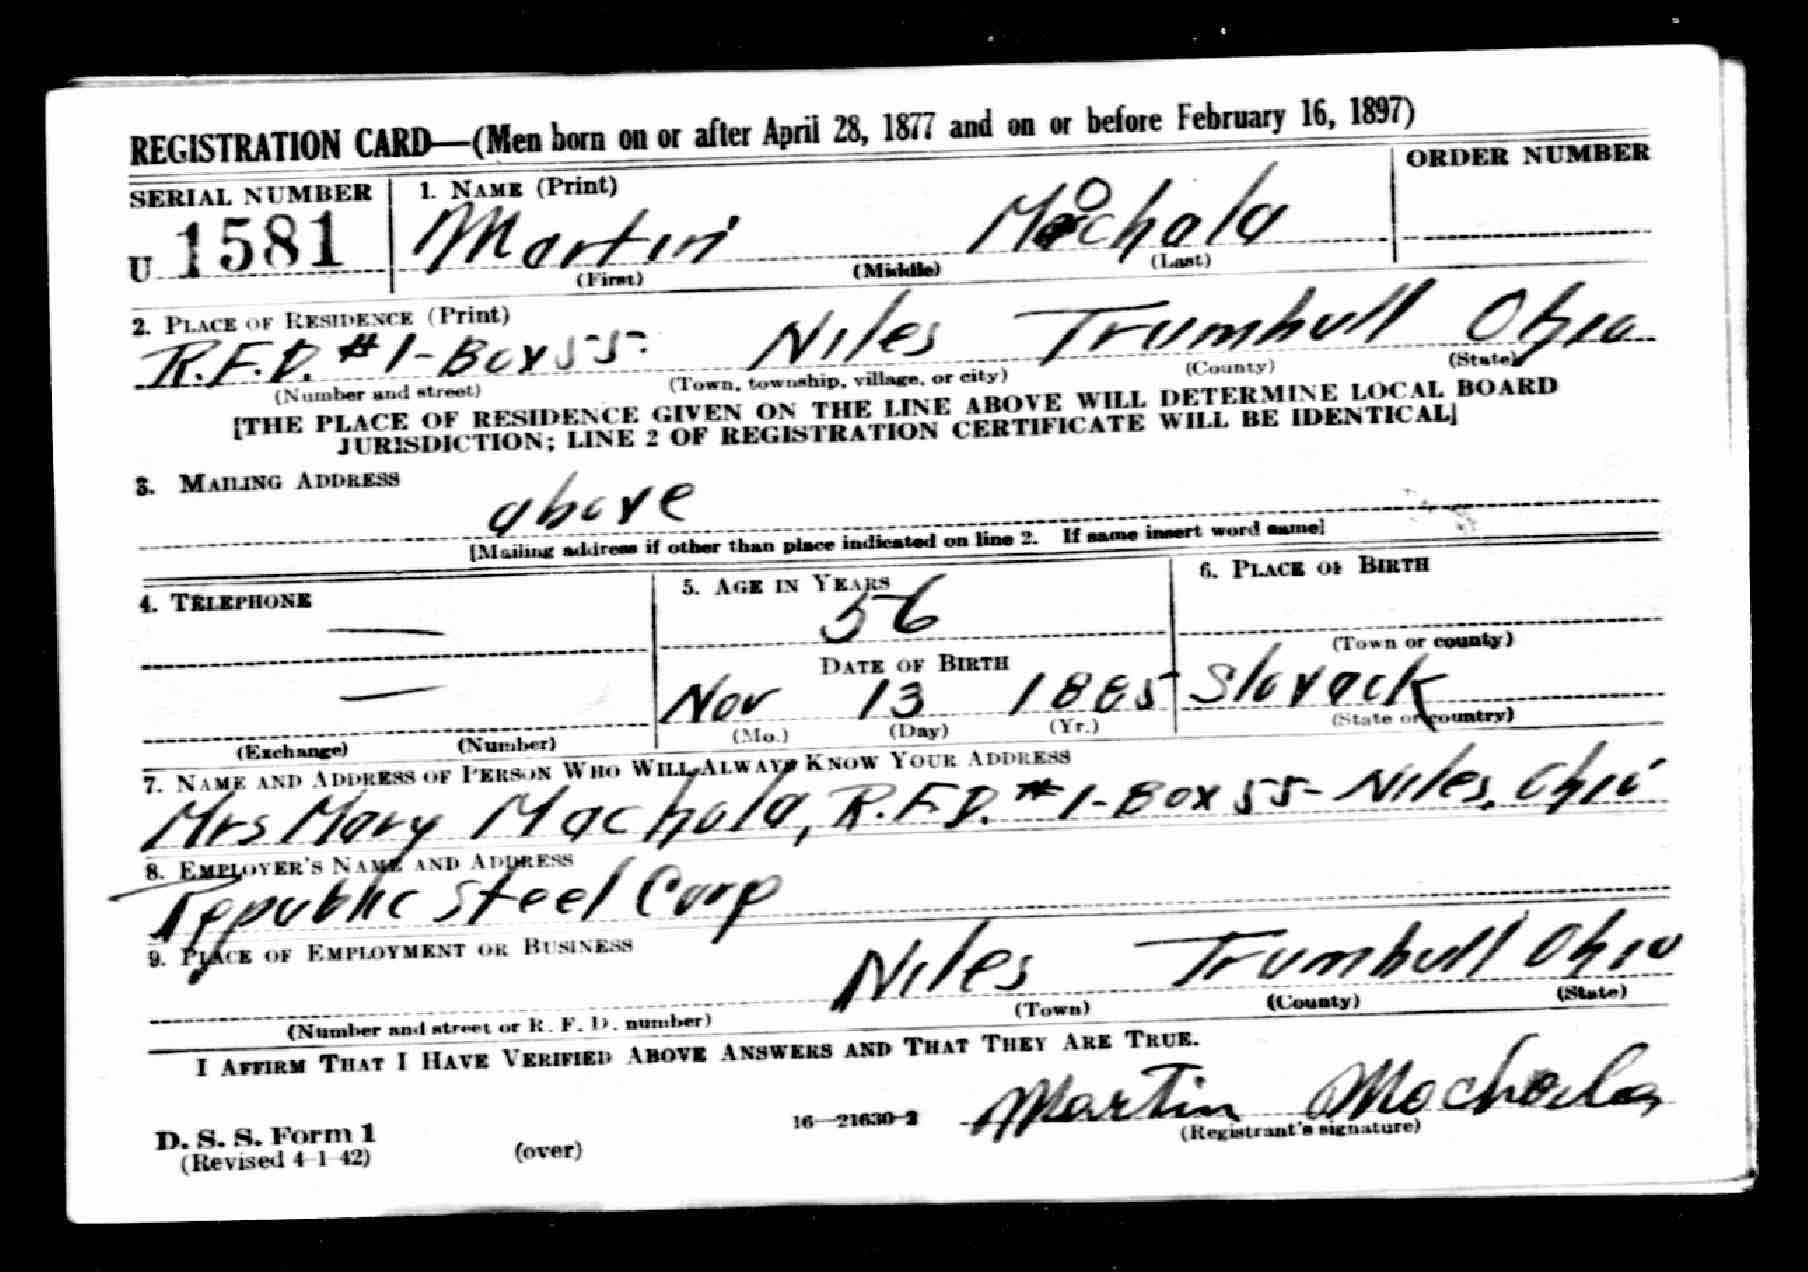 REGISTRATION CARD—(Men born on or after April 28, 1877 and on or before February 16, 1897)
SERIAL NUMBER 1. NAME (Print) ORDER NUMBER
U 1581 Martin Mochala
(First) (Middle) (Last)
2. PLACE OF RESIDENCE (Print)
R.F.D. #1-Box 55. Niles Trumbull Ohio
(Number and street) (Town, township, village, or city) (County) (State)
[THE PLACE OF RESIDENCE GIVEN ON THE LINE ABOVE WILL DETERMINE LOCAL BOARD
JURISDICTION; LINE 2 OF REGISTRATION CERTIFICATE WILL BE IDENTICAL]
3. MAILING ADDRESS
above
[Mailing address if other than place indicated on line 2. If same insert word same]
4. TELEPHONE 5. AGE IN YEARS 6. PLACE OF BIRTH
— 56
(Town or county)
DATE OF BIRTH
— Nov 13 1885 Slovack
(Exchange) (Number) (Mo.) (Day) (Yr.) (State or country)
7. NAME AND ADDRESS OF PERSON WHO WILL ALWAYS KNOW YOUR ADDRESS
Mrs Mary Machala, R.F.D. #1-Box 55- Niles, Ohio
8. EMPLOYER'S NAME AND ADDRESS
Republic Steel Corp
9. PLACE OF EMPLOYMENT OR BUSINESS
Niles Trumbull Ohio
(Number and street or R. F. D. number) (Town) (County) (State)
I AFFIRM THAT I HAVE VERIFIED ABOVE ANSWERS AND THAT THEY ARE TRUE.
Martin Mochala
D. S. S. Form 1 16—21630-2 (Registrant's signature)
(Revised 4-1-42) (over)